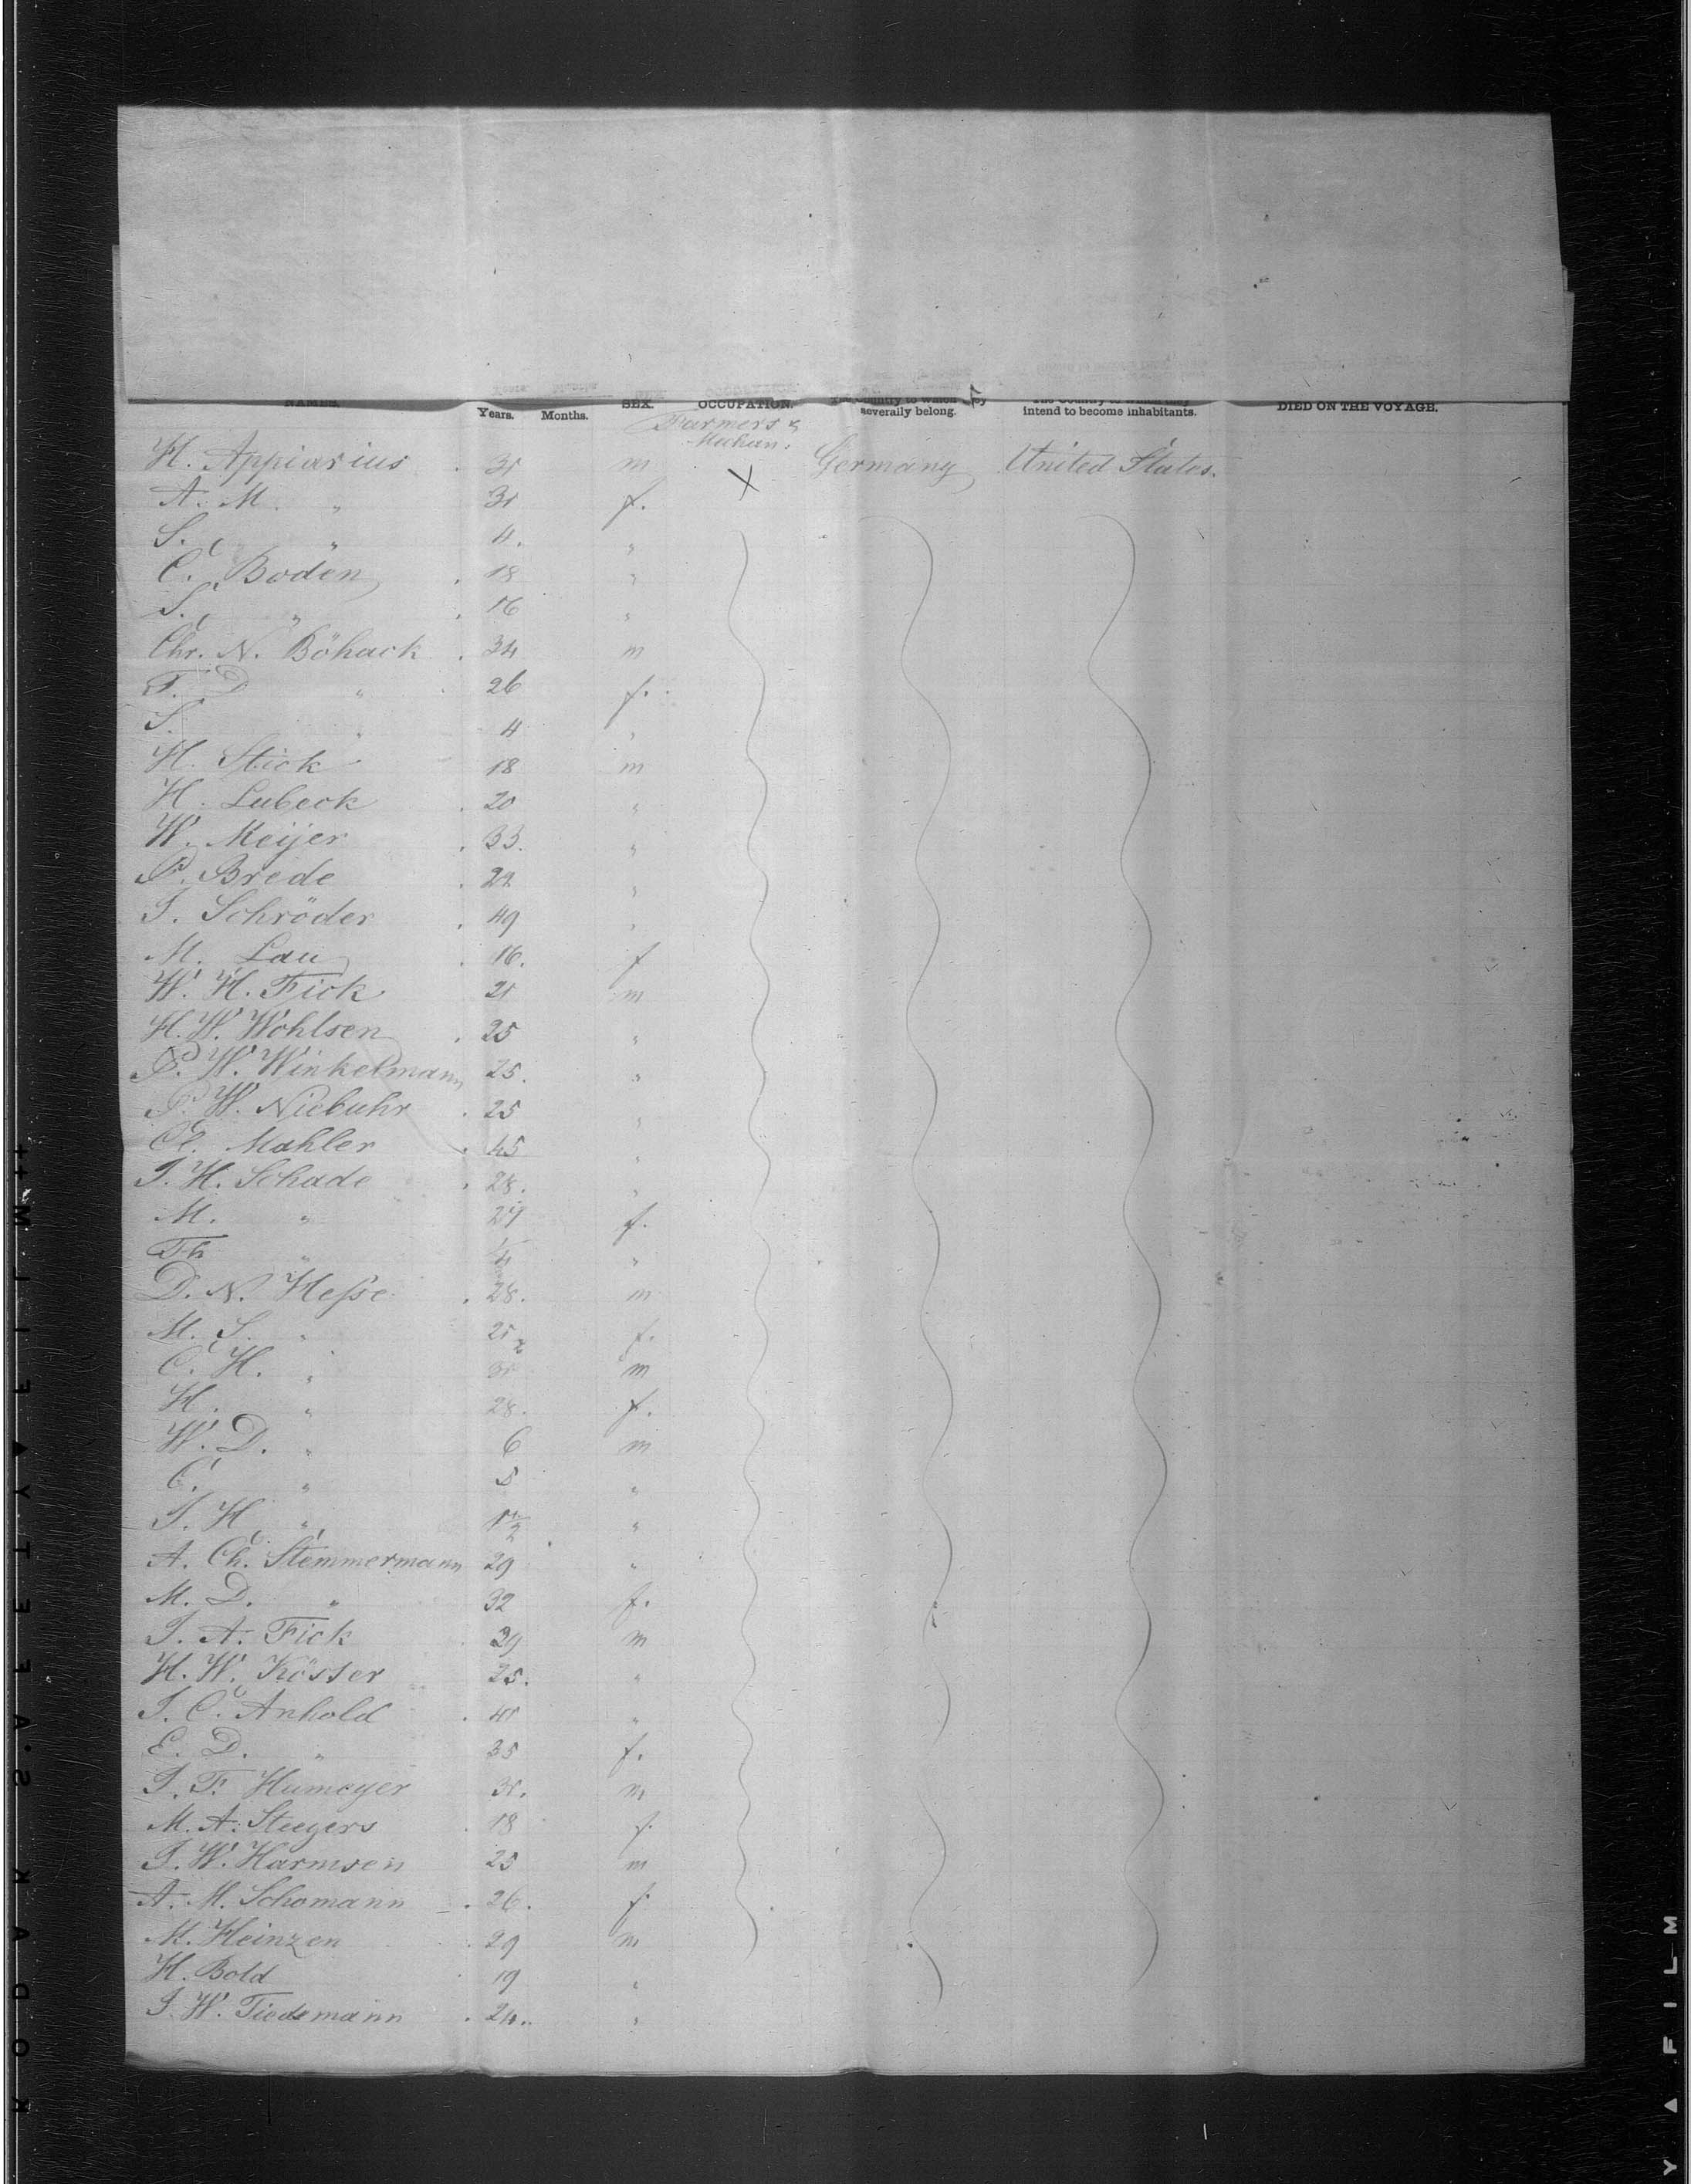 NAMES. Years. Months. SEX. OCCUPATION. The Country to which they severally belong. The Country to which they intend to become inhabitants. DIED ON THE VOYAGE.
Farmers &
Mechan:
H. Appiarius 31 m Germany United States.
A. M. " 31 f.
S. " 4. "
C. Boden 18 "
S. " 16 "
Chr. N. Böhack 34 m
F. D " 26 f.
S. " 4 "
H. Stick 18 m
H. Lubeck 20 "
W. Meijer 33. "
P. Brede 22 "
J. Schröder 49 "
M. Lau 16. f
W. H. Fick 21 m
H. W. Wohlsen 25 "
P. W. Winkelmann 25. "
P. W. Niebuhr 25 "
Cl. Mahler 45 "
J. H. Schade 28. "
M. " 27 f.
Th " 1/4 "
D. N. Heſse 28. m
M. S. " 21 f.
C. H. " m
H. " 28. f.
W. D. " 6 m
C. " 5 "
J. H " 1 1/2 "
A. Ch. Stemmermann 29 "
M. D. " 32 f.
J. A. Fick 29 m
H. W. Kösser 25. "
J. C. Anhold 41 "
E. D. " 35 f.
J. F. Humeyer 31. m
M. A. Steegers 18 f.
J. W. Harmsen 25 m
A. M. Schomann 26. f
M. Heinzen 29 m
H. Bold 19 "
J. W. Tiedemann 24. "